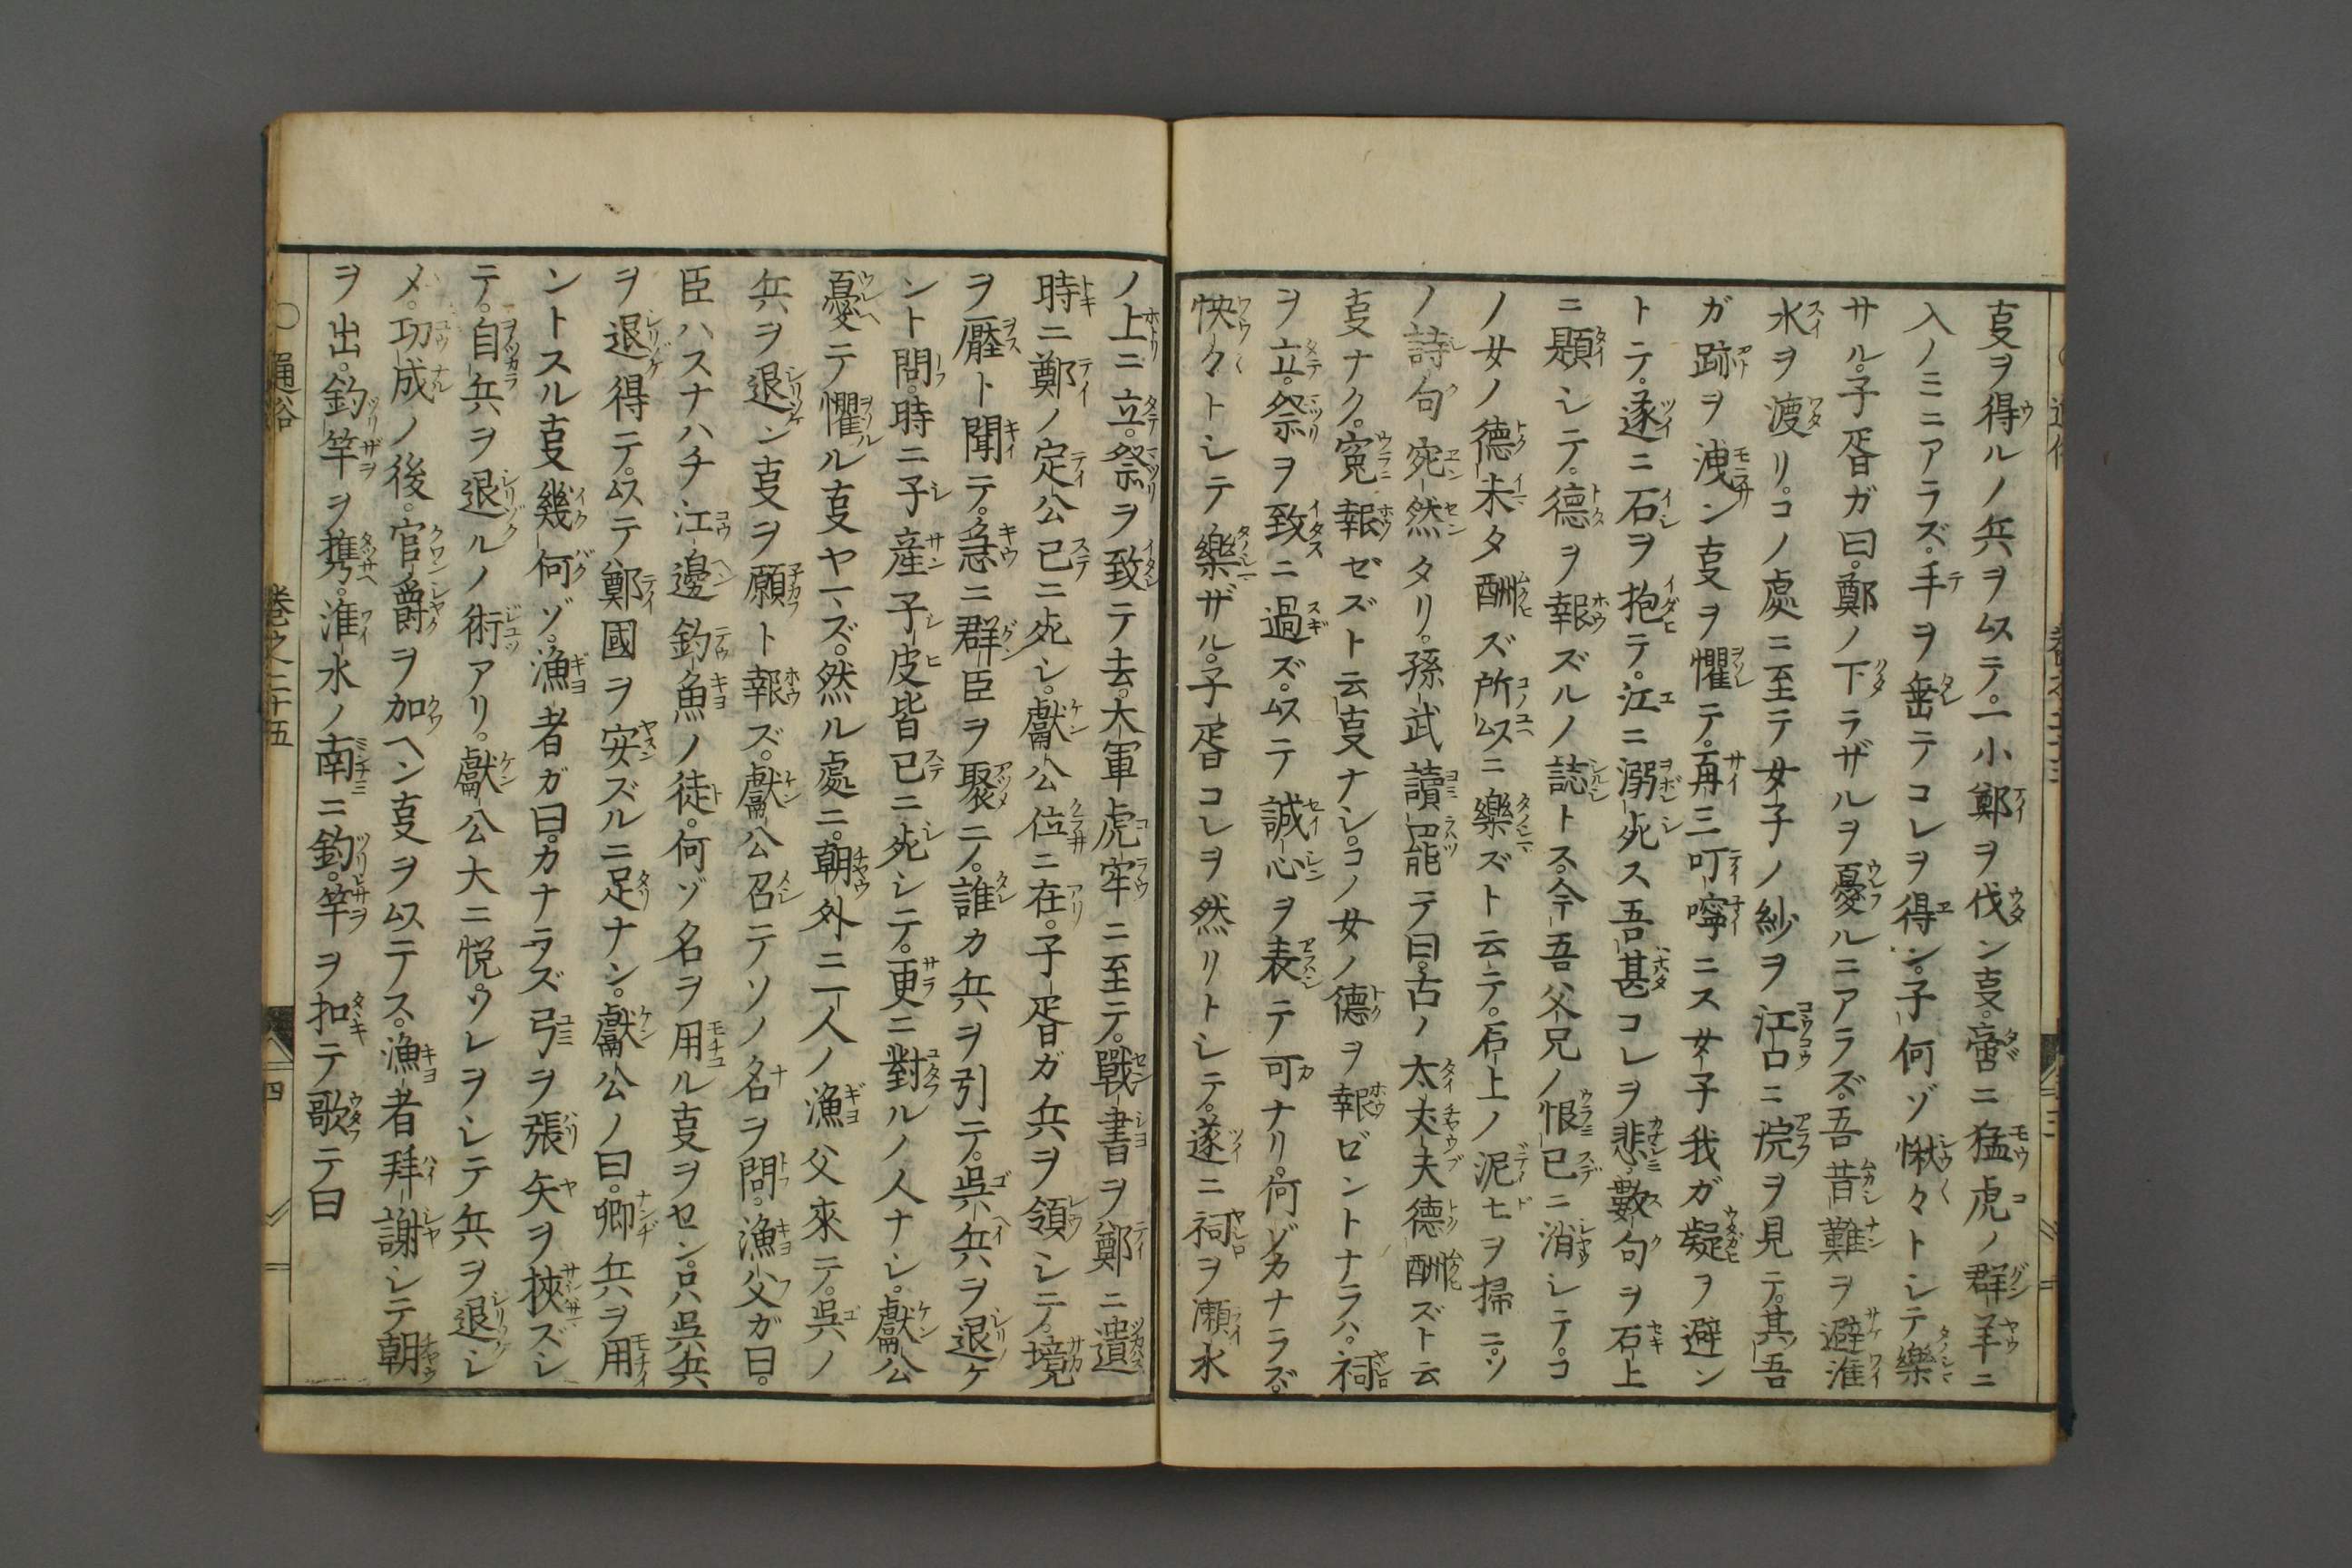 事ヲ得ルノ兵ヲ以テ。一小鄭ヲ伐ン事。啻ニ猛虎ノ群羊ニ
入ノミニアラズ。手ヲ垂テコレヲ得ン。子何ゾ愀々トシテ樂
サル。子胥ガ曰。鄭ノ下ラザルヲ憂ルニアラズ。吾昔難ヲ避淮
水ヲ渡リ。コノ處ニ至テ女子ノ紗ヲ江口ニ浣ヲ見テ。其吾
ガ跡ヲ洩ン事ヲ懼テ。再三叮嚀ニス女子我ガ疑ヲ避ン
トテ。遂ニ石ヲ抱テ。江ニ溺死ス吾甚コレヲ悲ミ數句ヲ石上
ニ題シテ。德ヲ報ズルノ誌トス。今吾父兄ノ恨已ニ消シテ。コ
ノ女ノ德未タ酬ズ所以ニ樂ズト云テ。石上ノ泥土ヲ掃ニ。ソ
ノ詩句宛然タリ。孫武讀罷テ曰。古ノ大丈夫德酬ズト云
事ナク。寃報ゼズト云事ナシ。コノ女ノ德ヲ報ゼントナラハ。祠
ヲ立。祭ヲ致ニ過ズ。以テ誠心ヲ表テ可ナリ。何ゾカナラズ。
怏々トシテ樂ザル。子胥コレヲ然リトシテ。遂ニ祠ヲ瀬水
ノ上ニ立。祭ヲ致テ去。大軍虎牢ニ至テ。戰書ヲ鄭ニ遣
時ニ鄭ノ定公已ニ死シ。獻公位ニ在。子胥ガ兵ヲ領シテ。境
ヲ壓ト聞テ。急ニ群臣ヲ聚ニテ。誰カ兵ヲ引テ。吳兵ヲ退ケ
ント問。時ニ子産子皮皆已ニ死シテ。更ニ對ルノ人ナシ。獻公
憂テ懼ル事ヤマズ。然ル處ニ。朝外ニ一人ノ漁父來テ。吳ノ
兵ヲ退ン事ヲ願ト報ズ。獻公召テソノ名ヲ問。漁父ガ曰。
臣ハスナハチ江邊釣魚ノ徒。何ゾ名ヲ用ル事ヲセン。只吳兵
ヲ退得テ。以テ鄭國ヲ安ズルニ足ナン。獻公ノ曰。卿兵ヲ用
ントスル事幾何ゾ。漁者ガ曰。カナラズ弓ヲ張矢ヲ挾ズシ
テ。自兵ヲ退ルノ術アリ。獻公大ニ悦。ワレヲシテ兵ヲ退シ
メ。功成ノ後。官爵ヲ加ヘン事ヲ以テス。漁者拜謝シテ朝
ヲ出。釣竿ヲ携。淮水ノ南ニ釣。竿ヲ扣テ歌テ曰
○通俗 卷之二十五 四